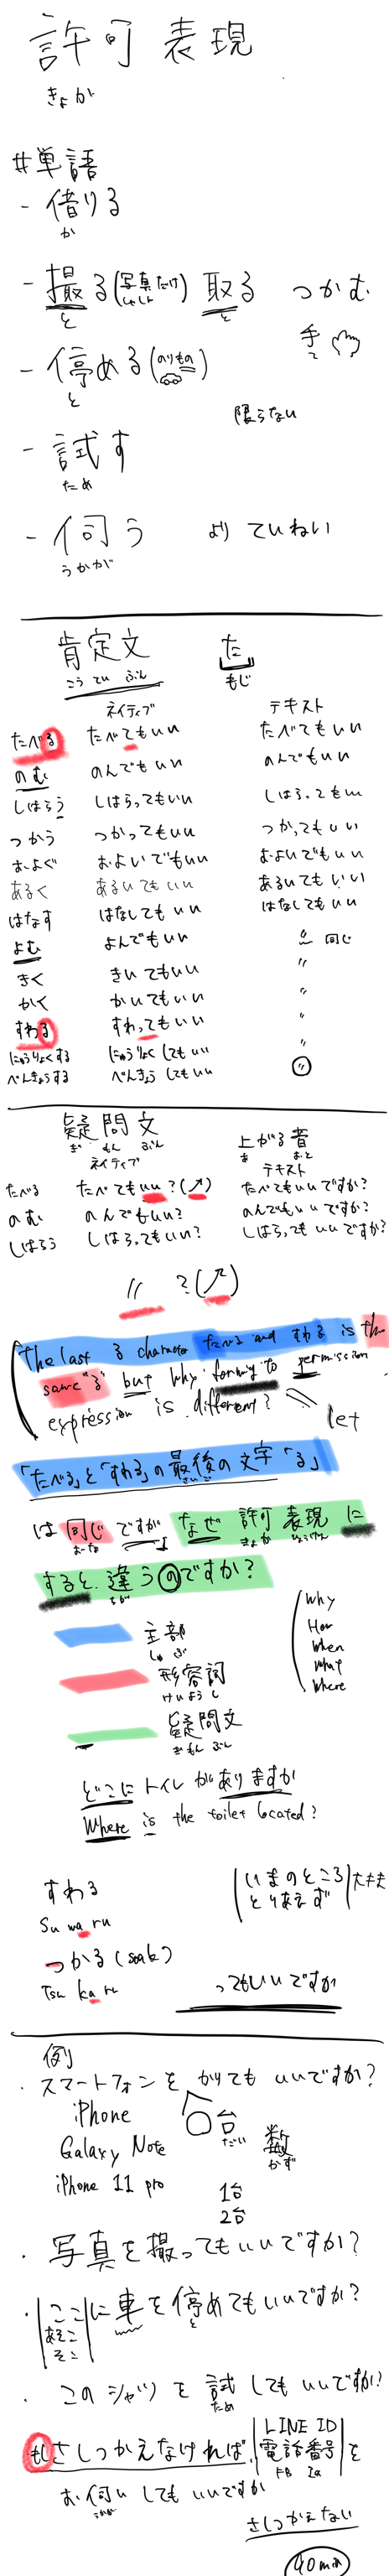 許可 表現
きょか
#単語
- 借りる
か
- 撮る(写真だけ) 取る つかむ
と しゃしん と 手
て
- 停める(のりもの)
と
限らない
- 試す
ため
- 伺う より ていねい
うかが
肯定文 た
こうていぶん もじ
ネイティブ テキスト
たべる たべてもいい たべてもいい
のむ のんでもいい のんでもいい
しはらう しはらってもいい しはらってもいい
つかう つかってもいい つかってもいい
およぐ およいでもいい およいでもいい
あるく あるいてもいい あるいてもいい
はなす はなしてもいい はなしてもいい
よむ よんでもいい 〃 同じ
きく きいてもいい 〃
かく かいてもいい 〃
すわる すわってもいい 〃
にゅうりょくする にゅうりょくしてもいい 〃
べんきょうする べんきょうしてもいい 〃
疑問文 上がる音
ぎ もん ぶん あ おと
ネイティブ テキスト
たべる たべてもいい?(↗) たべてもいいですか?
のむ のんでもいい? のんでもいいですか?
しはらう しはらってもいい? しはらってもいいですか?
〃 ?(↗)
The last る character たべる and すわる is the
same "る" but why forming to permission
expression is different?
let
「たべる」と「すわる」の最後の文字「る」
さいご
は 同じ ですが なぜ 許可表現に
おなじ きょか ひょうげん
すると違うのですか?
ちが
主部
しゅぶ
形容詞
けいようし
疑問文
ぎもんぶん
Why
How
When
What
Where
どこに トイレ が ありますか
Where is the toilet located?
すわる いまのところ 大丈夫
Su wa ru とりあえず
つかる (soak)
Tsu ka ru ってもいいですか
例
・スマートフォンを かりても いいですか?
iPhone 〇台
だい
Galaxy Note 数
かず
iPhone 11 pro 1台
2台
・写真を撮ってもいいですか?
・ここに車を停めてもいいですか?
あそこ と
そこ
・このシャツを試してもいいですか?
ため
もしさしつかえなければ、LINE ID
電話番号を
FB Ia
お伺いしてもいいですか
うかが
さしつかえない
40min